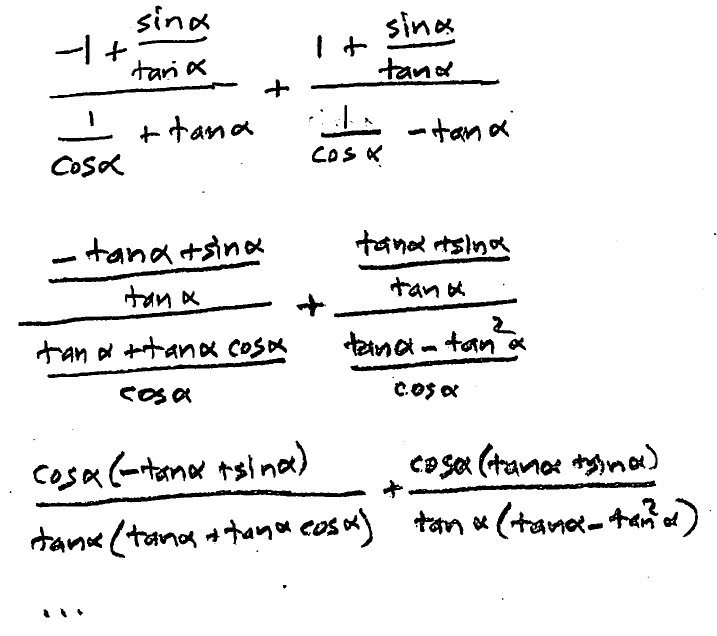 \frac{-1 + \frac{\sin\alpha}{\tan\alpha}}{\frac{1}{\cos\alpha} + \tan\alpha} + \frac{1 + \frac{\sin\alpha}{\tan\alpha}}{\frac{1}{\cos\alpha} - \tan\alpha}
\frac{\frac{-\tan\alpha + \sin\alpha}{\tan\alpha}}{\frac{\tan\alpha + \tan\alpha \cos\alpha}{\cos\alpha}} + \frac{\frac{\tan\alpha + \sin\alpha}{\tan\alpha}}{\frac{\tan\alpha - \tan^2\alpha}{\cos\alpha}}
\frac{\cos\alpha(-\tan\alpha + \sin\alpha)}{\tan\alpha(\tan\alpha + \tan\alpha \cos\alpha)} + \frac{\cos\alpha(\tan\alpha + \sin\alpha)}{\tan\alpha(\tan\alpha - \tan^2\alpha)}
...